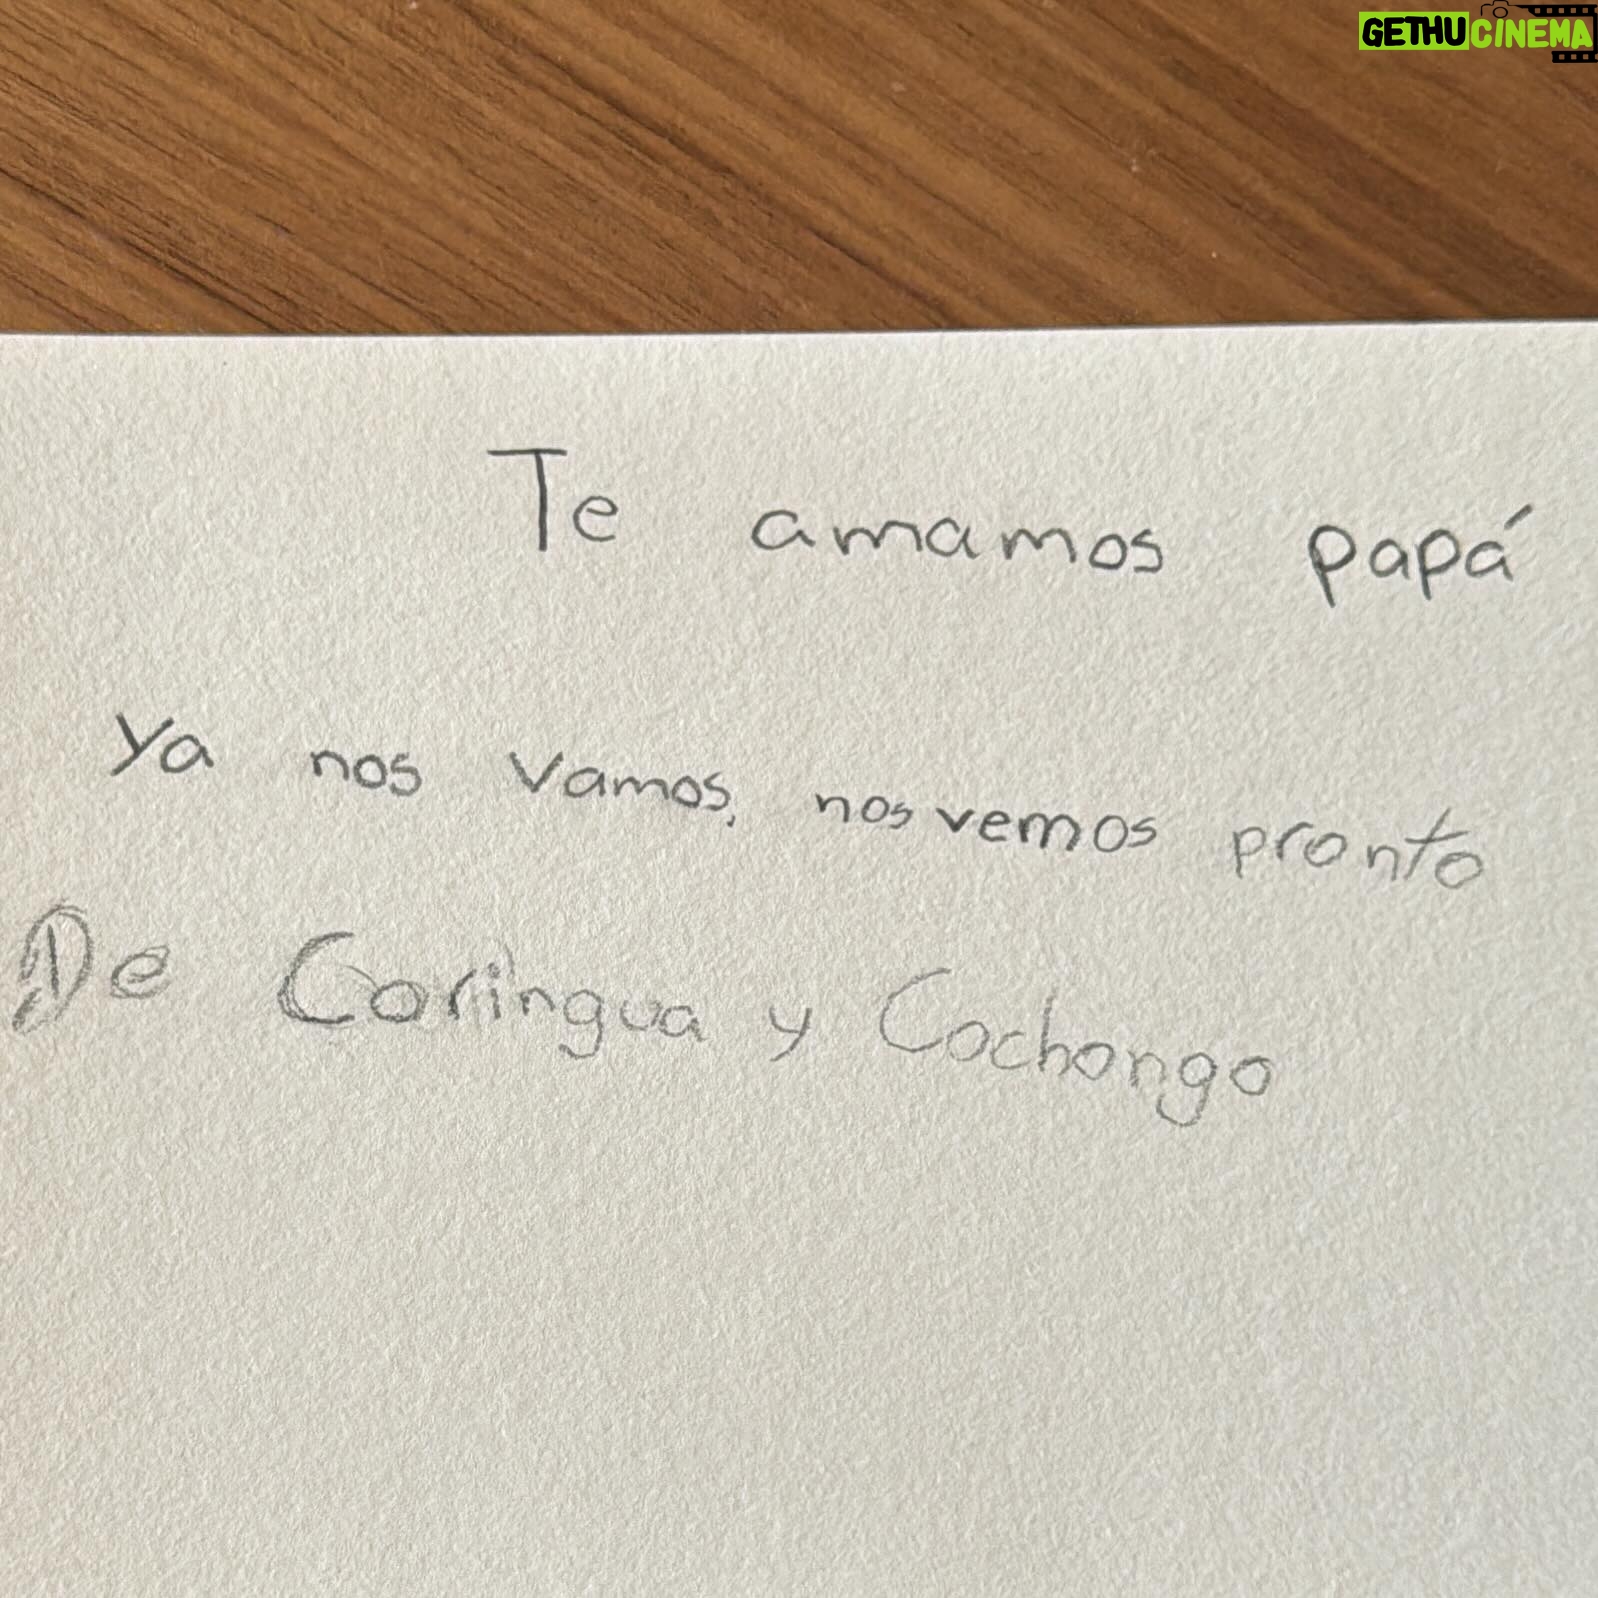 GETHUCINEMA
Te amamos papá
Ya nos vamos, nos vemos pronto
De Coringua y Cochongo